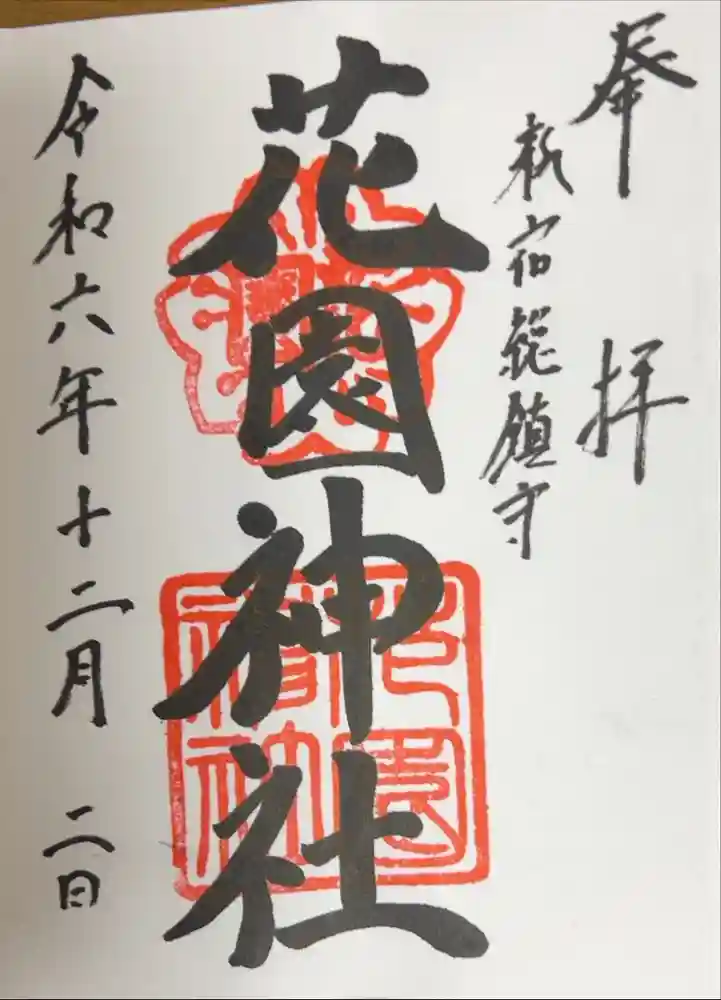 奉拝
新宿総鎮守
花園神社
令和六年十二月二日
花園神社